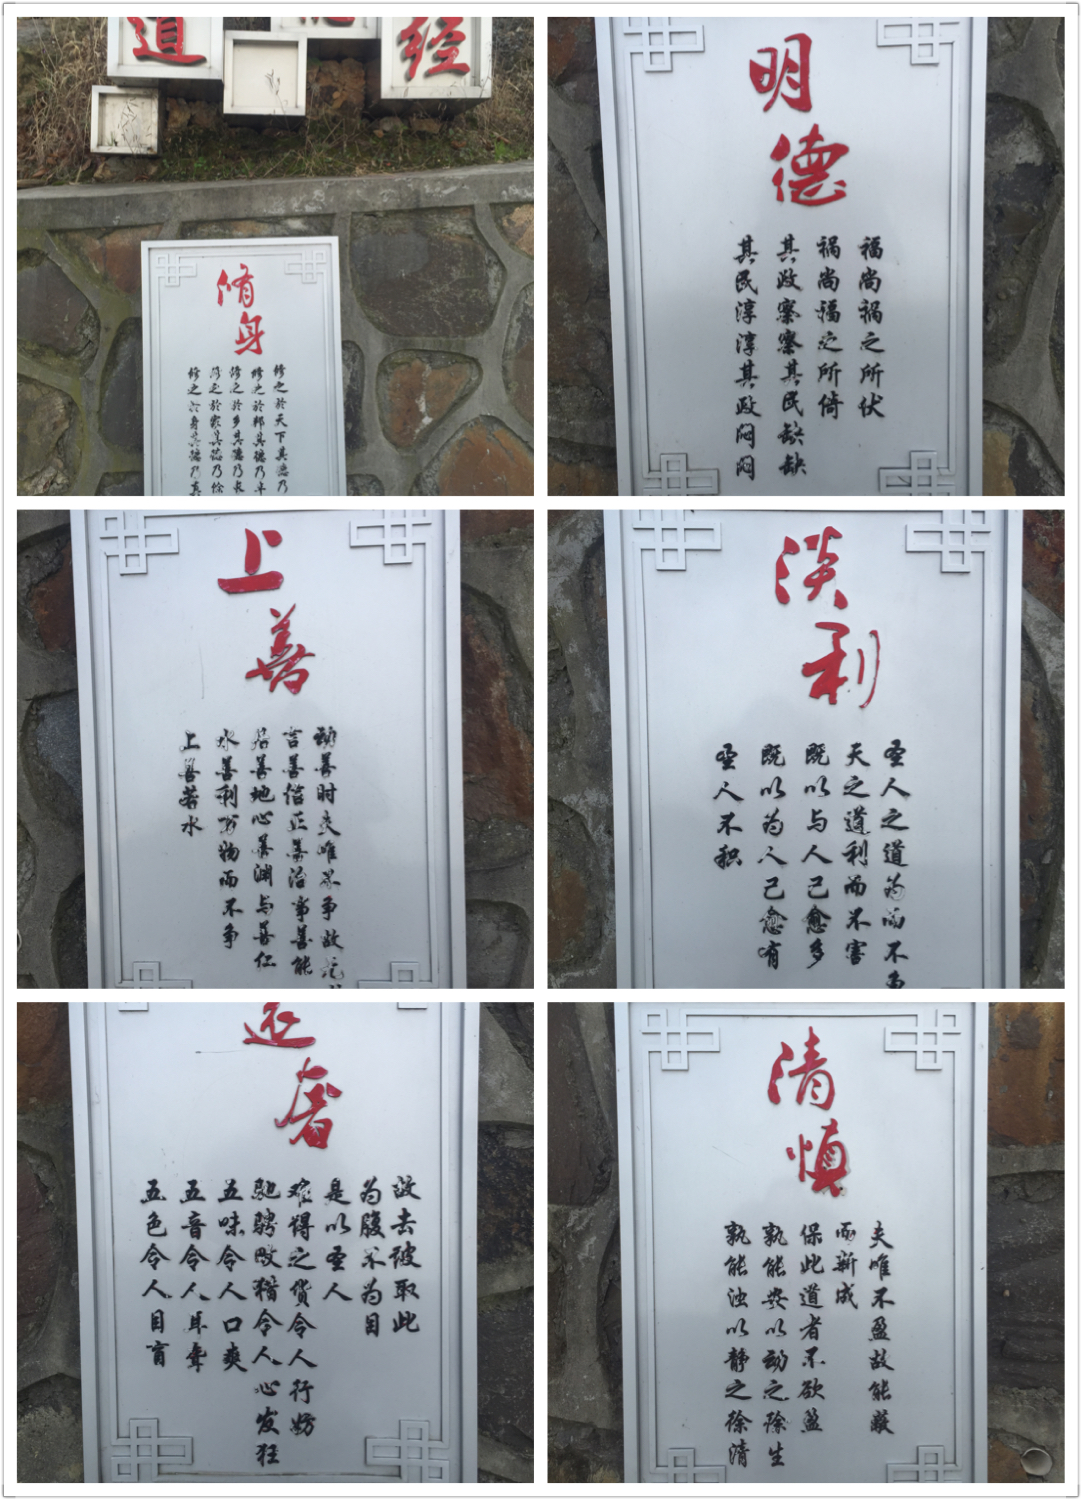 道
经
修身
修之於身其德乃真
修之於家其德乃馀
修之於乡其德乃长
修之於邦其德乃丰
修之於天下其德乃
明德
其民淳淳其政闷闷
其政察察其民缺缺
祸尚福之所倚
福尚祸之所伏
上善
上善若水
水善利万物而不争
居善地心善渊与善仁
言善信正善治事善能
动善时夫唯不争故无
淡利
圣人不积
既以为人己愈有
既以与人己愈多
天之道利而不害
圣人之道为而不争
远奢
五色令人目盲
五音令人耳聋
五味令人口爽
驰骋畋猎令人心发狂
难得之货令人行妨
是以圣人
为腹不为目
故去彼取此
清慎
孰能浊以静之徐清
孰能安以动之徐生
保此道者不欲盈
而新成
夫唯不盈故能蔽